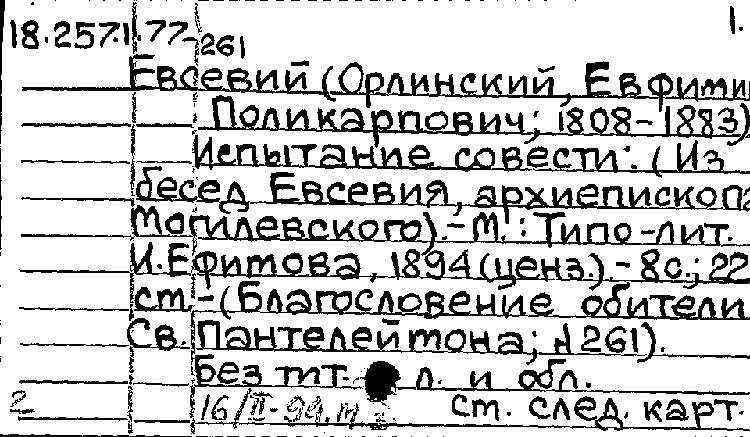 1.
18.257.1.77-261
Евсевий (Орлинский, Евфими
Поликарпович; 1808-1883)
Испытание совести: (Из
бесед Евсевия, архиепископа
Могилевского).-М.: Типо-лит.
И.Ефимова, 1894(ценз.).-8с.; 22
см.-(Благословение обители
Св. Пантелеймона; №261).
Без тит. л. и обл.
16/II-94.
см. след. карт.
2